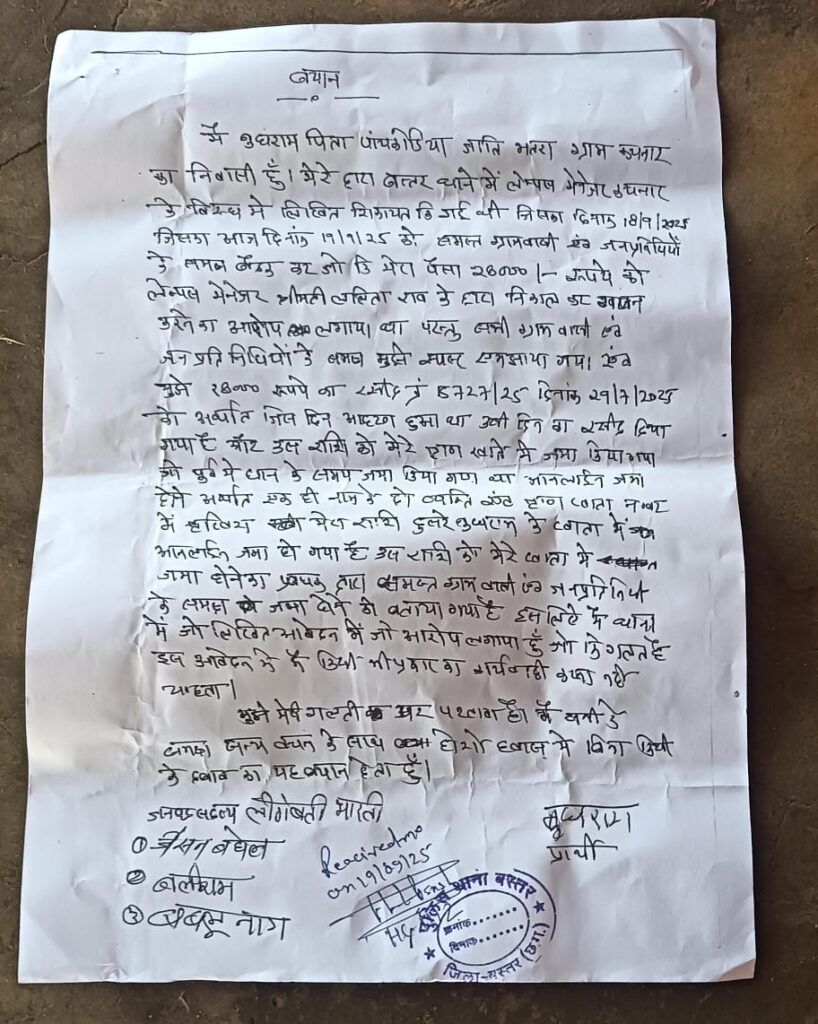 बयान
मैं बुधराम पिता पांचकोडिया जाति भतरा ग्राम कचनार
का निवासी हूँ। मेरे द्वारा बस्तर थाने में लेम्पस मेनेजर कचनार
के विरुध मे लिखित शिकायत कि गई थी जिसका दिनांक 18/9/2025
जिसका आज दिनांक 19/9/25 को समस्त ग्रामवासी एवं जनप्रतिनिधियों
के समक्ष बैठक कर जो कि मेरा पैसा 28000/- रूपये को
लेम्पस मेनेजर श्रीमती ललिता राव के द्वारा निकाल कर गबन
करने का आरोप लगाया था परंतु सभी ग्राम वासी एवं
जन प्रतिनिधियों के समक्ष मुझे समझाया गया। एवं
मुझे 28000 रूपये का रसीद नं 8727/25 दिनांक 29/7/2025
को अर्थात जिस दिन हुआ था उसी दिन का रसीद दिया
गया है और उस राशि को मेरे ऋण खाते में जमा किया गया
जो पूर्व मे धान के समय जमा किया गया था आनलाईन जमा
होने अर्थात एक ही नाम के दो व्यक्ति एवं ऋण खाता नम्बर
में मेरा राशि दुसरे बुधराम के खाता में
आनलाईन जमा हो गया है उस राशि को मेरे खाता में
जमा होने का प्रबंधक द्वारा समस्त ग्राम वासी एवं जनप्रतिनिधी
के समक्ष जमा होने को बताया गया है इस लिए मै थाना
में जो लिखित आवेदन में जो आरोप लगाया हूँ जो कि गलत है
इस आवेदन मे मै किसी भी प्रकार का कार्यवाही करना नही
चाहता।
मुझे मेरी गलती पर पश्चाताप है। मैं सभी के
समक्ष सत्य वचन के साथ होशो हवास मे बिना किसी
के दबाव का यह बयान देता हूँ।
जनपद सदस्य लीगेबती भारती
① बघेल
② बलीराम
③ नाग
बुधराम
प्रार्थी
Received me
on 19/09/25
पुलिस थाना बस्तर
क्रमांक.......
दिनांक.......
जिला-बस्तर (छ.ग.)